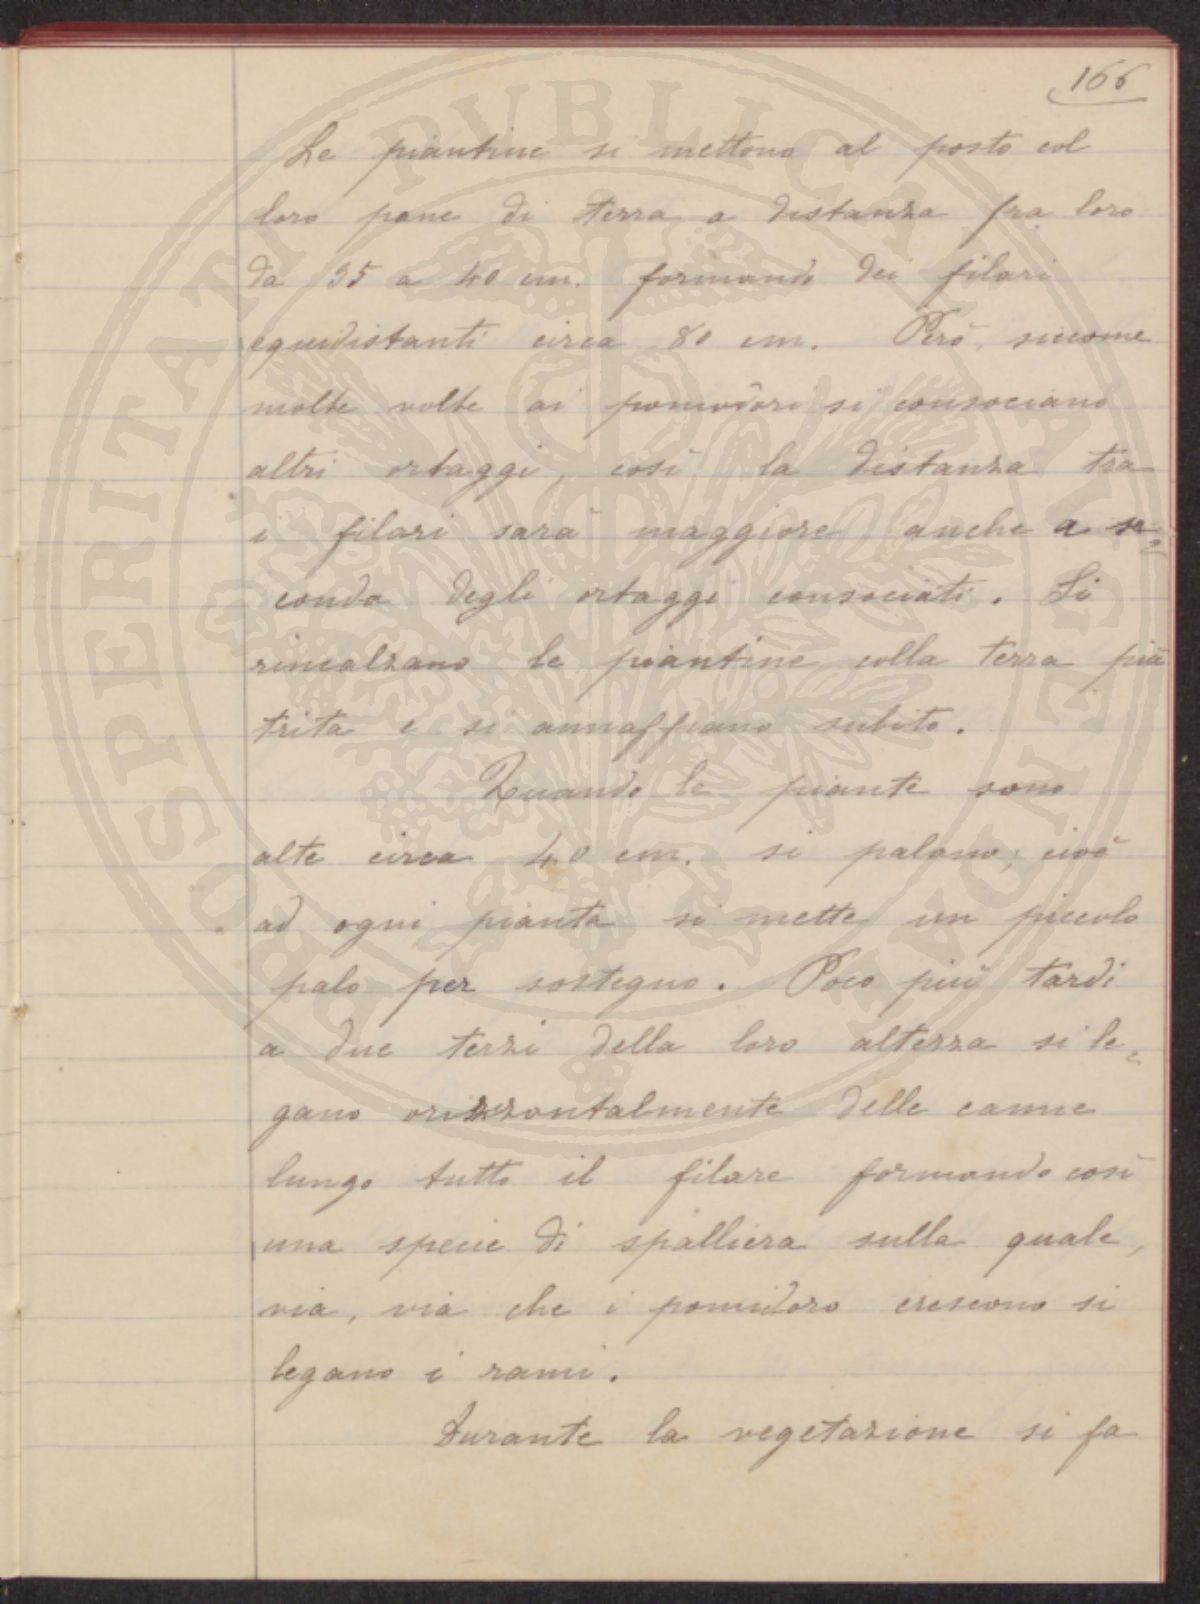 166
Le piantine si mettono al posto col
loro pane di terra a distanza fra loro
da 35 a 40 cm. formando dei filari
equidistanti circa 80 cm. Però, siccome
molte volte ai pomodori si consociano
altri ortaggi, così la distanza tra
i filari sarà maggiore anche a se=
conda degli ortaggi consociati. Si
rincalzano le piantine colla terra più
trita e si annaffiano subito.
Quando le piante sono
alte circa 40 cm. si palano; cioè
ad ogni pianta si mette un piccolo
palo per sostegno. Poco più tardi
a due terzi della loro altezza si le=
gano orizzontalmente delle canne
lungo tutto il filare formando così
una specie di spalliera sulla quale,
via, via che i pomidoro crescono si
legano i rami.
Durante la vegetazione si fa
PROSPERITATI PUBLICAE AUGENDAE